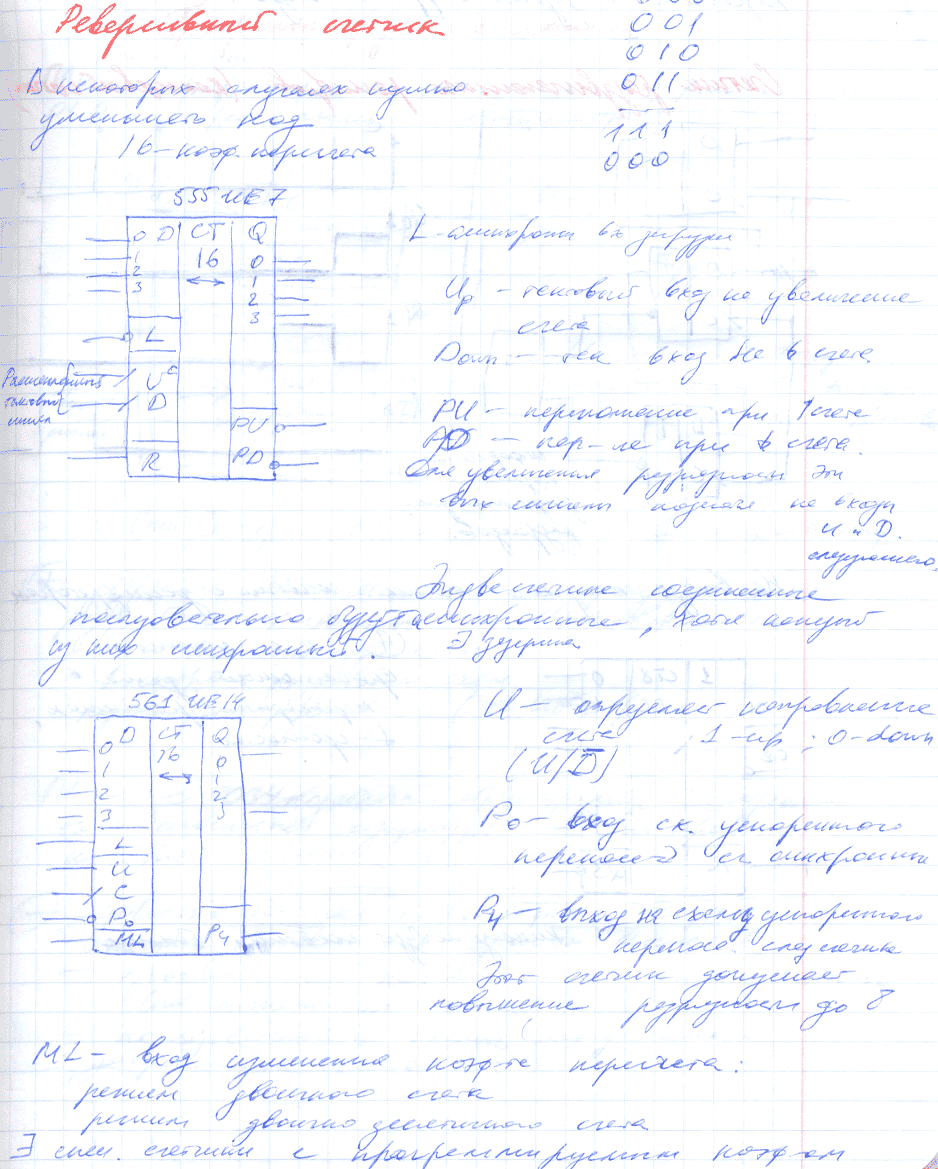 Реверсивный счетчик
001
010
011
111
000
В некоторых случаях нужно
уменьшать код
16 - коэф. пересчета
555 ИЕ7
0 D CT Q
1 16 0
2 1
3 2
3
L
U
D
PU
R PD
Расщепленный
тактовый
сигнал
L - асинхронн вх загрузки
Up - тактовый вход на увеличение
счета
Down - такт вход на в счета
PU - переполнение при ↑ счете
PD - пер-ие при ↓ счета.
Для увеличения разрядности эти
вых сигналы подают на входы
U и D.
следующего.
Эти две счетчика соединенные
последовательно будут асинхронные, хотя каждый
из них синхронный. ∃ задержка
561 ИЕ14
0 D CT Q
1 16 0
2 1
3 2
3
L
U
C
P0
ML P4
U - определяет направление
счета 1-up; 0-down
(U/D̅)
P0 - вход сх. ускоренного
переноса => сч синхронный
P4 - выход на схему ускоренного
перенос. след счетчика
Этот счетчик допускает
повышение разрядности до 8
ML - вход изменения коэф-та пересчета:
режим двоичного счета
режим двоично десятичного счета
∃ спец. счетчики с программируемым коэф-ом